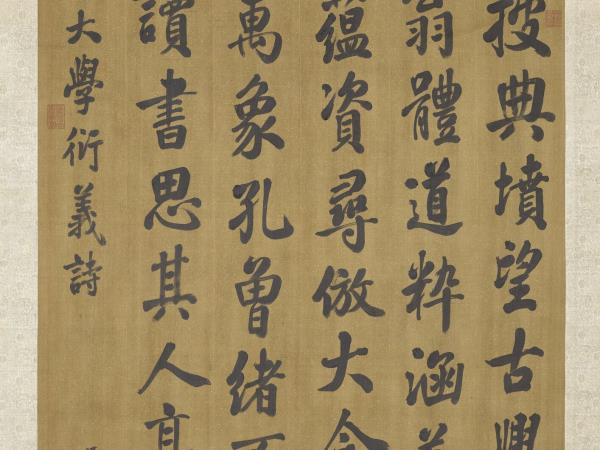 披典墳望古興
翁體道粹涵
蘊資尋倣大
萬象孔曾緒
讀書思其人
大學衍義詩